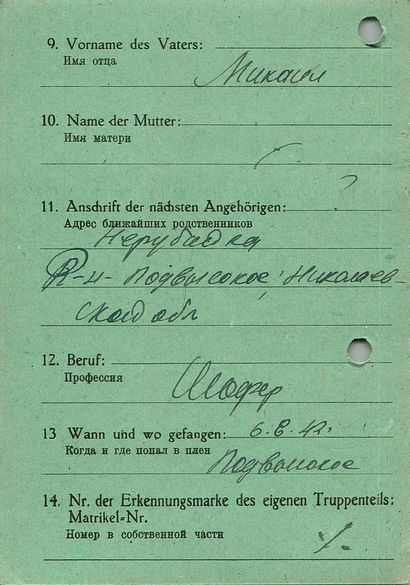 9. Vorname des Vaters:
Имя отца
Микаил
10. Name der Mutter:
Имя матери
?
11. Anschrift der nächsten Angehörigen:
Адрес ближайших родственников
Нерубайка
Р-н- Подвысокое, Николаев-
ской обл
12. Beruf:
Профессия
Шофер
13 Wann und wo gefangen: 6.8.42.
Когда и где попал в плен
Подвысокое
14. Nr. der Erkennungsmarke des eigenen Truppenteils:
Matrikel-Nr.
Номер в собственной части